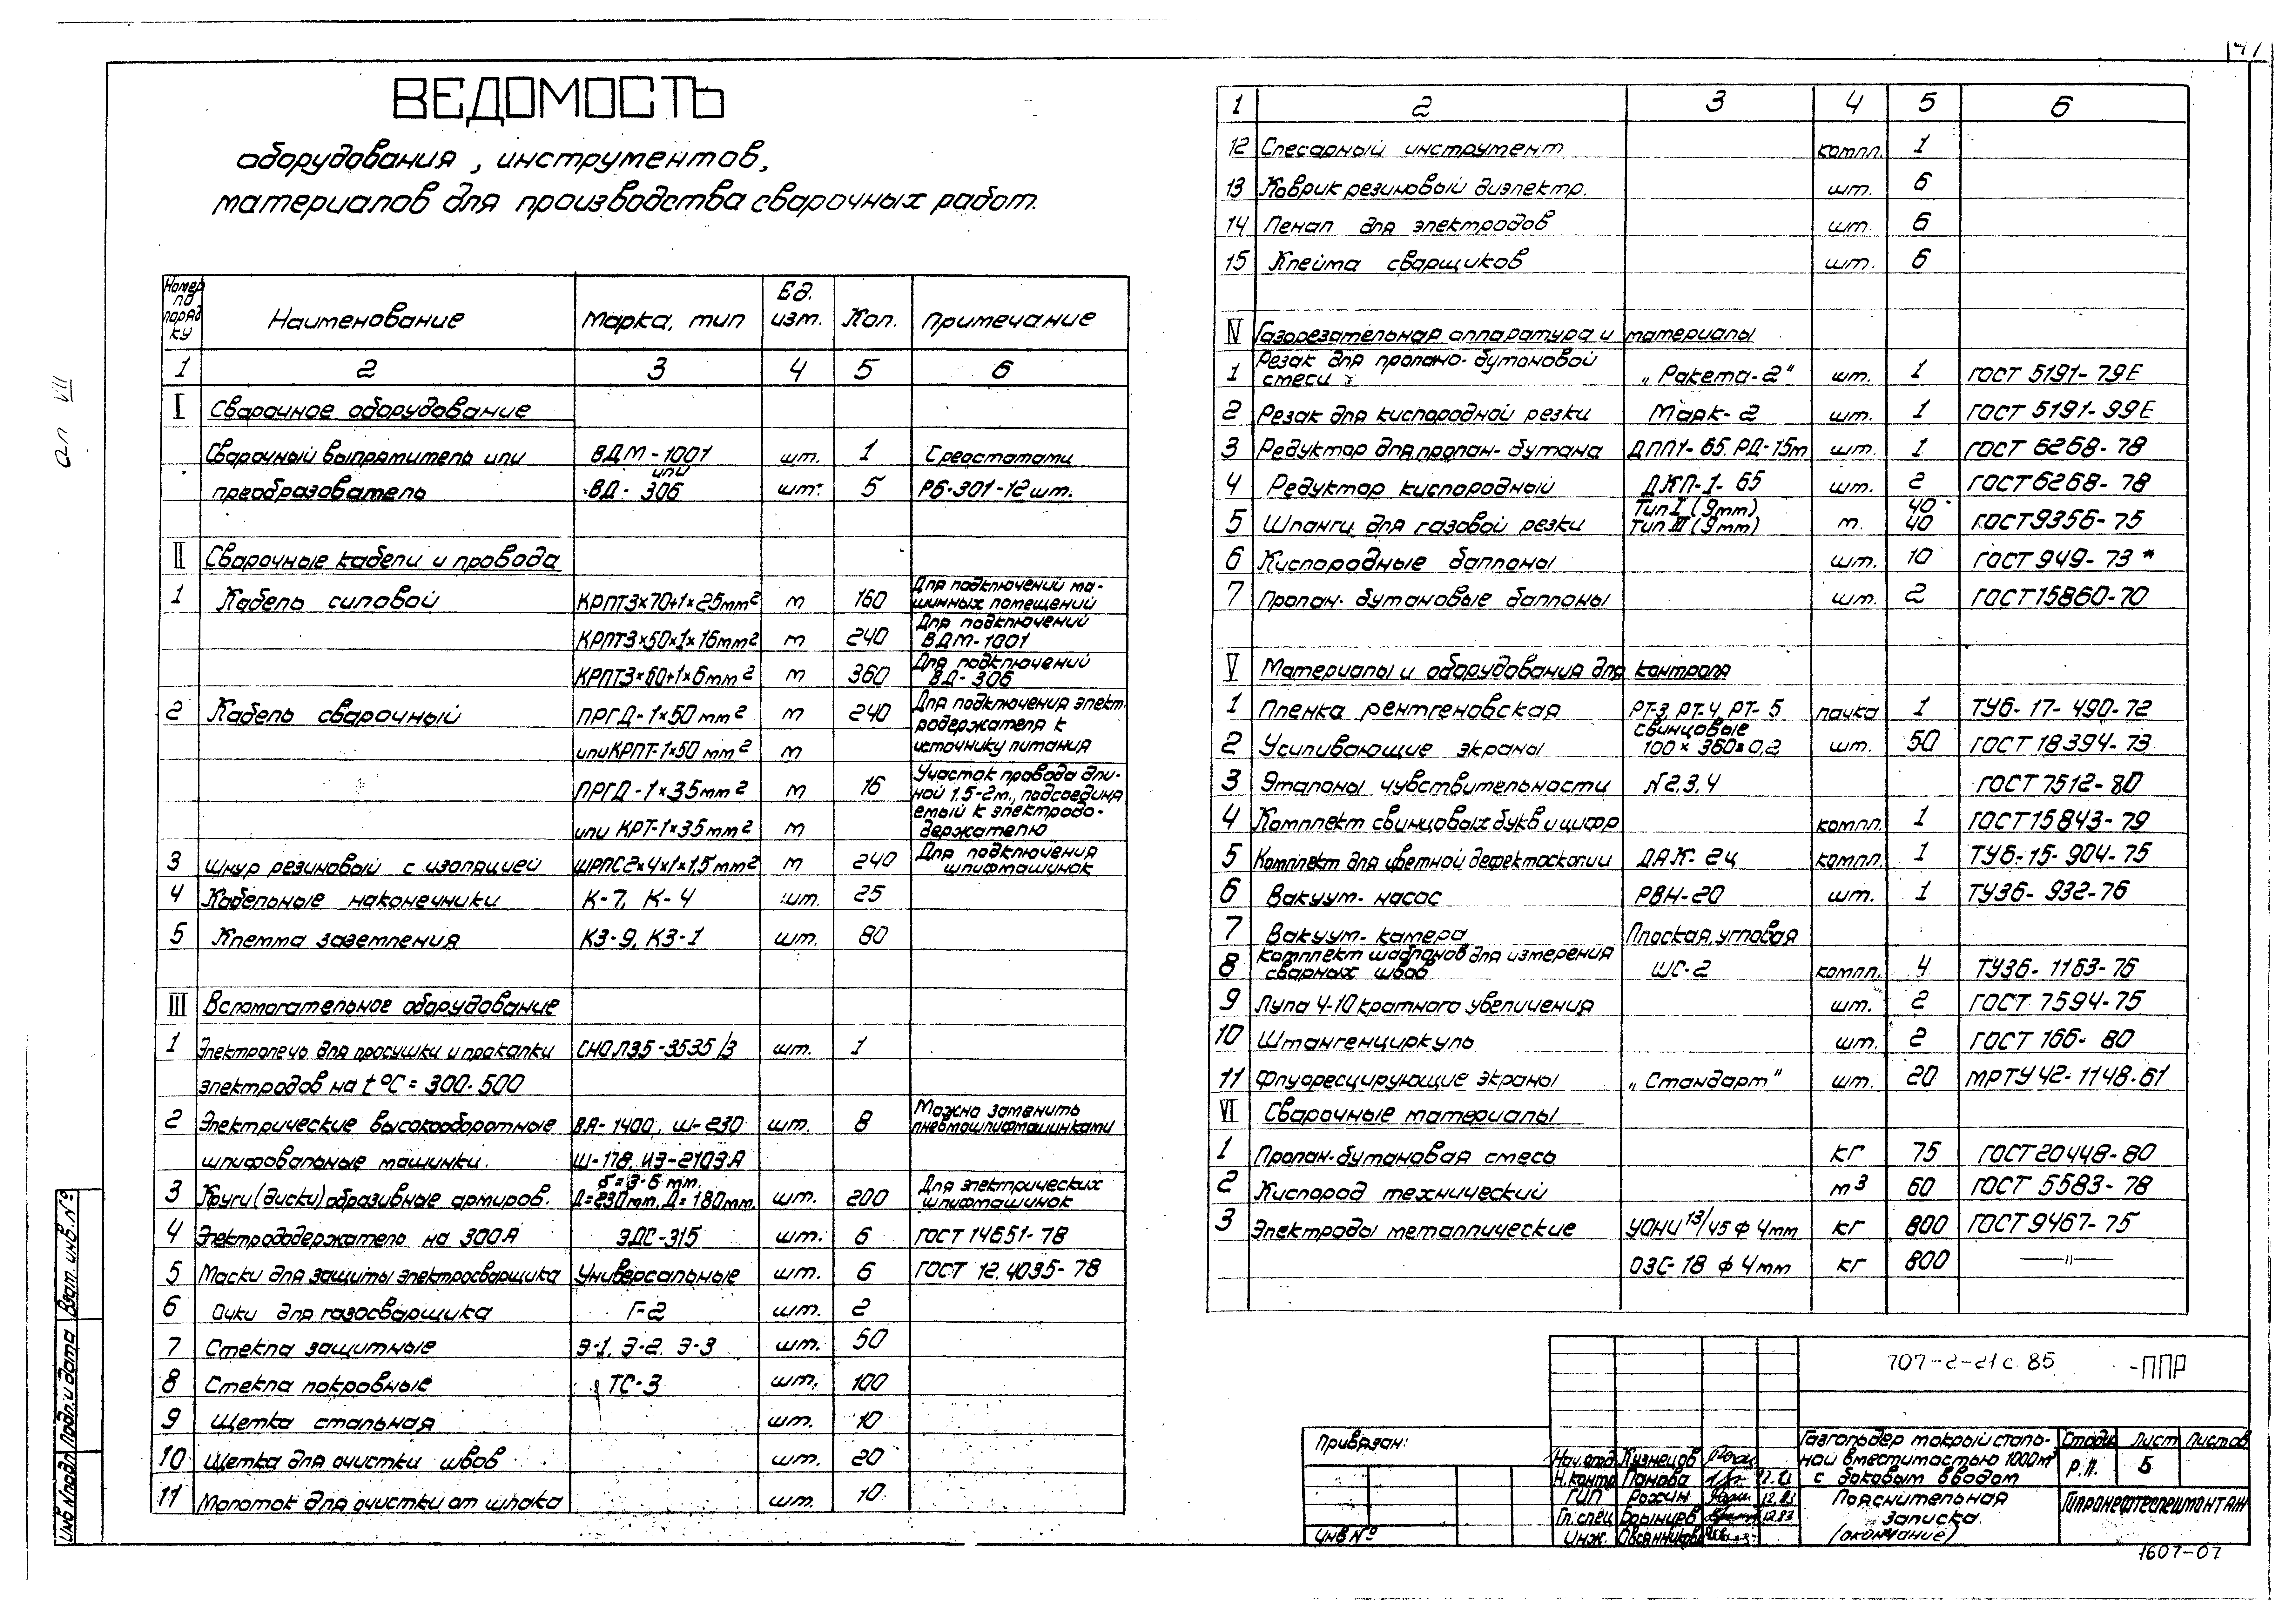 ВЕДОМОСТЬ
оборудования, инструментов,
материалов для производства сварочных работ.
Номер по порядку Наименование Марка, тип Ед. изм. Кол. Примечание
1 2 3 4 5 6
I Сварочное оборудование
Сварочный выпрямитель или ВДМ-1001 шт. 1 С реостатами
или
преобразователь ВД-306 шт. 5 РБ-301-12 шт.
II Сварочные кабели и провода
1 Кабель силовой КРПТ3×70+1×25мм² м 160 Для подключений машинных помещений
КРПТ3×50×1×16мм² м 240 Для подключений ВДМ-1001
КРПТ3×60+1×6мм² м 360 Для подключений ВД-306
2 Кабель сварочный ПРГД-1×50мм² м 240 Для подключения элект-
родержателя к
или КРПТ-1×50мм² м источнику питания
ПРГД-1×35мм² м 16 Участок провода дли-
ной 1,5-2м., подсоединя
емый к электродо-
или КРТ-1×35мм² м держателю
3 Шнур резиновый с изоляцией ШРПС2×4×1×1,5мм² м 240 Для подключения шлифмашинок
4 Кабельные наконечники К-7, К-4 шт. 25
5 Клемма заземления КЗ-9, КЗ-1 шт. 80
III Вспомогательное оборудование
1 Электропечь для просушки и прокалки СНОЛ35-3535/3 шт. 1
электродов на t°С = 300-500
2 Электрические высокооборотные ВЯ-1400, Ш-230 шт. 8 Можно заменить пневмошлифмашинками
шлифовальные машинки. Ш-178, ИЭ-2103А
б=3-6 мм.
3 Круги (диски) образивные армиров. Д=230мм, Д=180мм. шт. 200 Для электрических шлифмашинок
4 Электрододержатель на 300А ЭДС-315 шт. 6 ГОСТ 14651-78
5 Маски для защиты электросварщика Универсальные шт. 6 ГОСТ 12.4035-78
6 Очки для газосварщика Г-2 шт. 2
7 Стекла защитные Э-1, Э-2, Э-3 шт. 50
8 Стекла покровные ТС-3 шт. 100
9 Щетка стальная шт. 10
10 Щетка для очистки швов шт. 20
11 Молоток для очистки от шлака шт. 10
1 2 3 4 5 6
12 Слесарный инструмент компл. 1
13 Коврик резиновый диэлектр. шт. 6
14 Пенал для электродов шт. 6
15 Клейма сварщиков шт. 6
IV Газорезательная аппаратура и материалы
1 Резак для пропано-бутановой смеси „Ракета-2" шт. 1 ГОСТ 5191-79Е
2 Резак для кислородной резки Маяк-2 шт. 1 ГОСТ 5191-99Е
3 Редуктор для пропан-бутана ДПП1-65, РД-15м шт. 1 ГОСТ 6268-78
4 Редуктор кислородный ДКП-1-65 шт. 2 ГОСТ 6268-78
Тип I (9мм) 40
5 Шланги для газовой резки Тип III (9мм) м. 40 ГОСТ 9356-75
6 Кислородные баллоны шт. 10 ГОСТ 949-73*
7 Пропан-бутановые баллоны шт. 2 ГОСТ 15860-70
V Материалы и оборудования для контроля
1 Пленка рентгеновская РТ-3, РТ-4, РТ-5 пачка 1 ТУ6-17-490-72
свинцовые
2 Усиливающие экраны 100×360×0,2 шт. 50 ГОСТ 18394-73
3 Эталоны чувствительности №2,3,4 ГОСТ 7512-80
4 Комплект свинцовых букв и цифр компл. 1 ГОСТ 15843-79
5 Комплект для цветной дефектоскопии ДАК-2Ц компл. 1 ТУ6-15-904-75
6 Вакуум-насос РВН-20 шт. 1 ТУ36-932-76
7 Вакуум-камера Плоская, угловая
8 Комплект шаблонов для измерения сварных швов ШС-2 компл. 4 ТУ36-1163-76
9 Лупа 4-10 кратного увеличения шт. 2 ГОСТ 7594-75
10 Штангенциркуль шт. 2 ГОСТ 166-80
11 Флуоресцирующие экраны „Стандарт" шт. 20 МРТУ42-1148-61
VI Сварочные материалы
1 Пропан-бутановая смесь кг 75 ГОСТ 20448-80
2 Кислород технический м³ 60 ГОСТ 5583-78
3 Электроды металлические УОНИ 13/45 ф 4мм кг 800 ГОСТ 9467-75
ОЗС-18 ф 4мм кг 800 —"—
707-2-21с.85 -ППР
Привязан:
Инв №
Нач.отд Кузнецов
Н.контр. Панова
ГИП Рохин 12.83
Гл.спец Брынцев 12.83
Инж. Овсянникова
Газгольдер мокрый сталь-
ной вместимостью 1000м³
с боковым вводом
Стадия Лист Листов
Р.П. 5
Пояснительная
записка.
(окончание)
Гипронефтеспецмонтаж
1607-07
Инв №подл. Подп. и дата Взам. инв. №
ал VIII